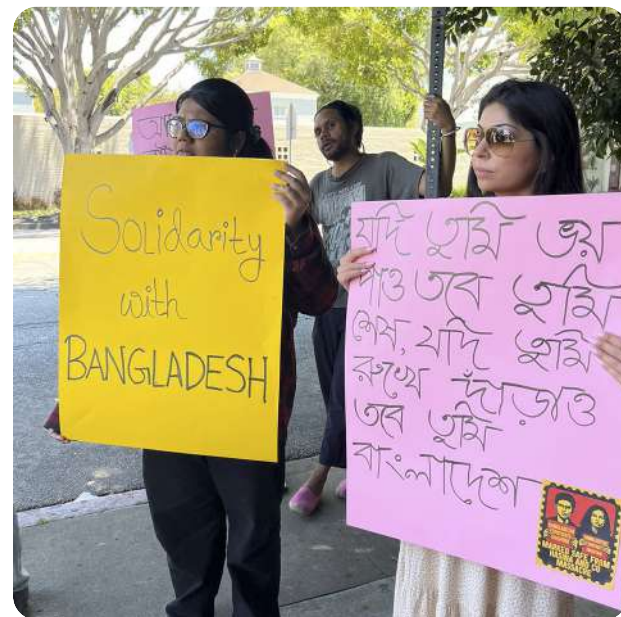 Solidarity
with
BANGLADESH
যদি তুমি ভয়
পাও তবে তুমি
শেষ, যদি তুমি
রুখে দাঁড়াও
তবে তুমি
বাংলাদেশ
MARKED SAFE FROM
HASINA AND CO
MASSACRE